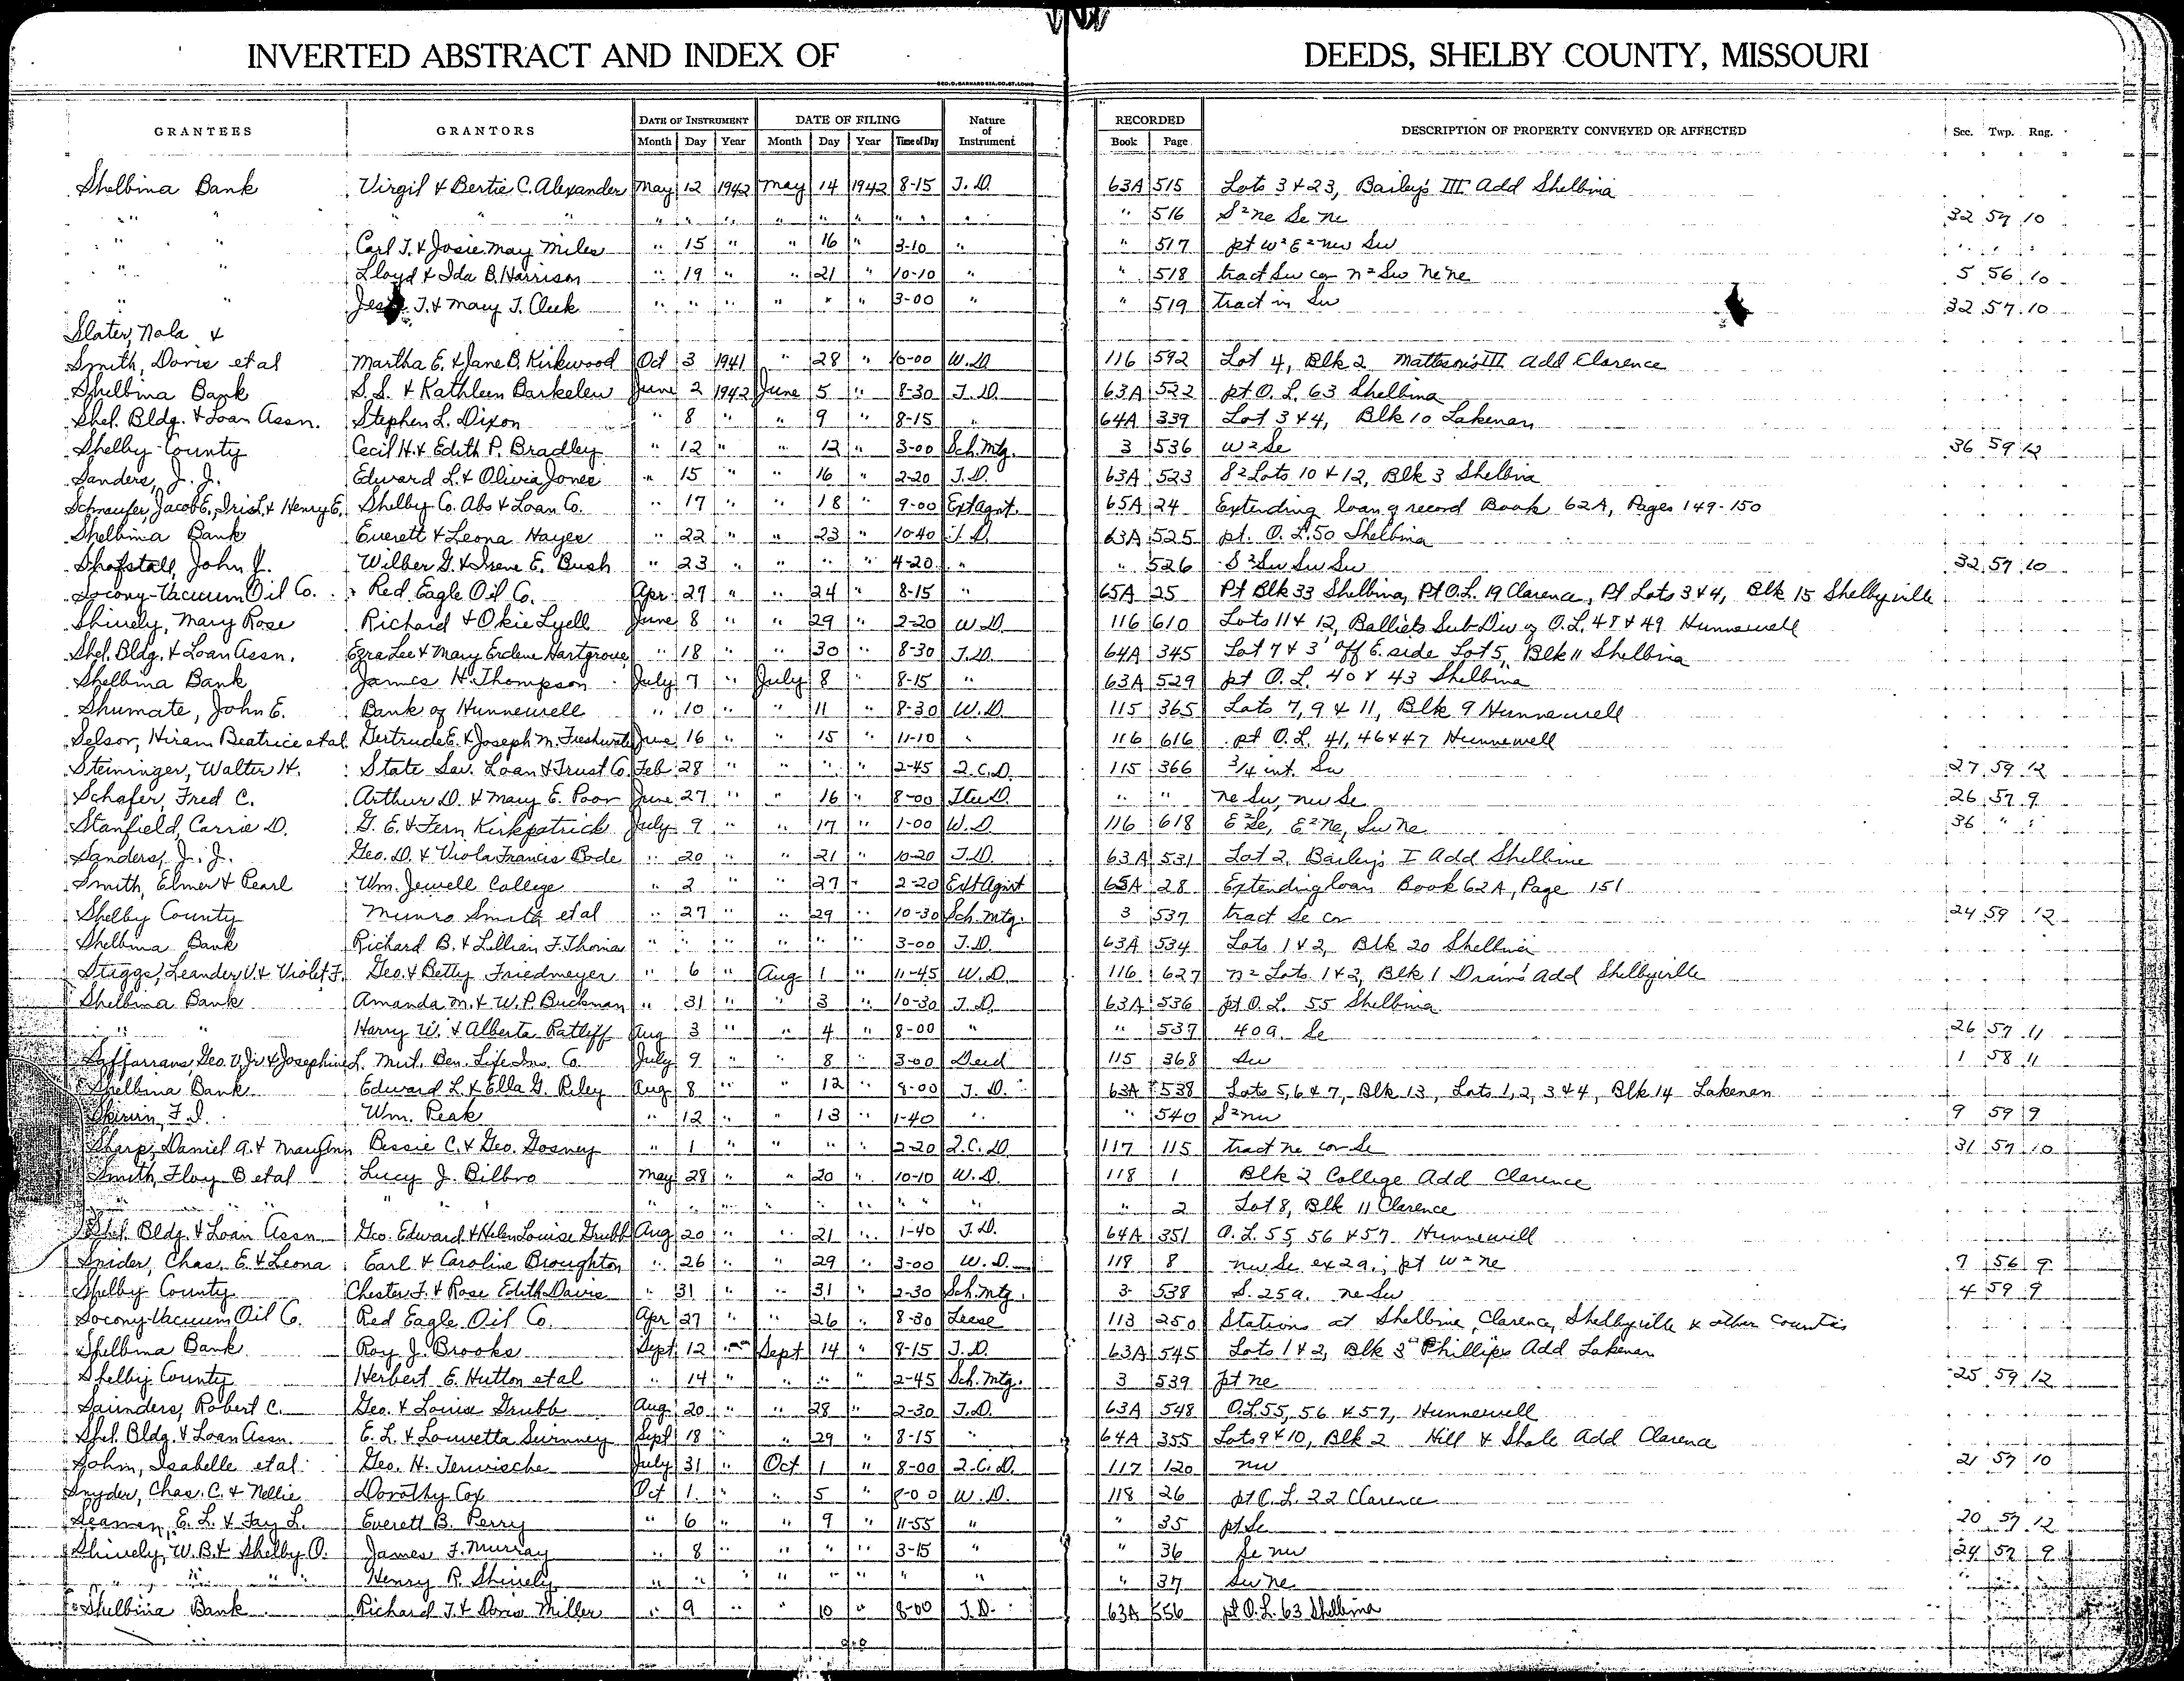 INVERTED ABSTRACT AND INDEX OF DEEDS, SHELBY COUNTY, MISSOURI
GRANTEES GRANTORS DATE OF INSTRUMENT DATE OF FILING Nature of Instrument RECORDED DESCRIPTION OF PROPERTY CONVEYED OR AFFECTED Sec. Twp. Rng.
Month Day Year Month Day Year Time of Day Book Page
Shelbina Bank Virgil & Bertie C. Alexander May 12 1942 May 14 1942 8-15 T.D. 63A 515 Lots 3 & 23, Bailey's III Add Shelbina
" " " " " " " " " " " " " " " 516 S²ne Se ne 32 57 10
" " Carl T. & Josie May Miles " 15 " " 16 " 3-10 " " 517 pt W²E²nw Sw " " "
" " Lloyd & Ida B. Harrison " 19 " " 21 " 10-10 " " 518 tract Sw cor n²Sw ne ne 5 56 10
" " T. & Mary T. Cleek " " " " " " 3-00 " " 519 tract in Sw 32 57 10
Slater, Nola &
Smith, Doris et al Martha E. & Jane B. Kirkwood Oct 3 1941 " 28 " 10-00 W.D. 116 592 Lot 4, Blk 2 Matteson's III add Clarence
Shelbina Bank S.S. & Kathleen Barkelew June 2 1942 June 5 " 8-30 T.D. 63A 522 pt O.L. 63 Shelbina
Shel. Bldg. & Loan Assn. Stephen L. Dixon " 8 " 9 " 8-15 " 64A 339 Lot 3 & 4, Blk 10 Lakenan
Shelby County Cecil H. & Edith P. Bradley " 12 " " 12 " 3-00 Sch. Mtg. 3 536 W²Se 36 59 12
Sanders, J. J. Edward L. & Olivia Jones " 15 " " 16 " 2-20 T.D. 63A 523 S²Lots 10 & 12, Blk 3 Shelbina
Schnaufer, Jacob E., Iris L. & Henry E. Shelby Co. Abs & Loan Co. " 17 " " 18 " 9-00 Ext Agmt. 65A 24 Extending loan of record Book 62A, Pages 149-150
Shelbina Bank Everett & Leona Hayes " 22 " " 23 " 10-40 T.D. 63A 525 pt. O.L. 50 Shelbina
Shofstall, John Y. Wilber G. & Irene E. Bush " 23 " " " " 4-20 " " 526 S²Sw Sw Sw 32 57 10
Socony-Vacuum Oil Co. Red Eagle Oil Co. Apr 27 " " 24 " 8-15 " 65A 25 Pt Blk 33 Shelbina, Pt O.L. 19 Clarence, Pt Lots 3 & 4, Blk 15 Shelbyville
Shively, Mary Rose Richard & Okie Lyell June 8 " " 29 " 2-20 W.D. 116 610 Lots 11 & 12, Balliets Sub-Div of O.L. 48 & 49 Hunnewell
Shel. Bldg. & Loan Assn. Ezra Lee & Mary Erdene Hartgrove " 18 " 30 " 8-30 T.D. 64A 345 Lot 7 & 3' off E. side Lot 5, Blk 11 Shelbina
Shelbina Bank James H. Thompson July 7 " July 8 " 8-15 " 63A 529 pt O.L. 40 & 43 Shelbina
Shumate, John E. Bank of Hunnewell " 10 " 11 " 8-30 W.D. 115 365 Lots 7, 9 & 11, Blk 9 Hunnewell
Selsor, Hiram Beatrice et al Gertrude E. & Joseph M. Freshwater June 16 " " 15 " 11-10 " 116 616 pt O.L. 41, 46 & 47 Hunnewell
Steininger, Walter H. State Sav. Loan & Trust Co. Feb 28 " " " " 2-45 Q.C.D. 115 366 3/4 int. Sw 27 59 12
Schafer, Fred C. Arthur D. & Mary E. Poor June 27 " " 16 " 8-00 " " ne Sw, nw Se 26 57 9
Stanfield, Carrie D. G. E. & Fern Kirkpatrick July 9 " " 17 " 1-00 W.D. 116 618 E²Se, E²ne, Sw ne 36 " "
Sanders, J. J. Geo. D. & Viola Francis Bode " 20 " 21 " 10-20 T.D. 63A 531 Lot 2, Bailey's I Add Shelbina
Smith, Elmer & Pearl Wm. Jewell College " 2 " 27 " 2-20 Ext Agmt 65A 28 Extending loan Book 62A, Page 151
Shelby County Munro Smith et al " 27 " 29 " 10-30 Sch. Mtg. 3 537 tract Se cor 24 59 12
Shelbina Bank Richard B. & Lillian F. Thomas " " " " " " 3-00 T.D. 63A 534 Lots 1 & 2, Blk 20 Shelbina
Staggs, Leander V. & Violet F. Geo. & Betty Friedmeyer " 6 " Aug 1 " 11-45 W.D. 116 627 n² Lots 1 & 2, Blk 1 Drain's add Shelbyville
Shelbina Bank Amanda M. & W.P. Buckman " 31 " " 3 " 10-30 T.D. 63A 536 pt O.L. 55 Shelbina
" " Harry W. & Alberta Ratliff Aug 3 " " 4 " 8-00 " " 537 40a. Se 26 57 11
Saffarrans, Geo. V., Jr. & Josephine L. Mut. Ben. Life Ins. Co. July 9 " " 8 " 3-00 Deed 115 368 Sw 1 58 11
Shelbina Bank Edward L. & Ella G. Riley Aug 8 " " 12 " 8-00 T.D. 63A 538 Lots 5, 6 & 7, Blk 13, Lots 1, 2, 3 & 4, Blk 14 Lakenan
Skirvin, F. D. Wm. Peak " 12 " " 13 " 1-40 " " 540 S²nw 9 59 9
Sharp, Daniel A. & Mary Ann Bessie C. & Geo. Gosney " 1 " " " " 2-20 Q.C.D. 117 115 tract ne cor Se 31 57 10
Smith, Floy B et al Lucy J. Bilbro May 28 " " 20 " 10-10 W.D. 118 1 Blk 2 College Add Clarence
" " " " " " " " " " " " " 2 Lot 8, Blk 11 Clarence
Shel. Bldg. & Loan Assn. Geo. Edward & Helen Louise Grubb Aug 20 " " 21 " 1-40 T.D. 64A 351 O.L. 55, 56 & 57 Hunnewell
Snider, Chas. E. & Leona Earl & Caroline Broughton " 26 " " 29 " 3-00 W.D. 118 8 nw Se ex 2a.; pt W²ne 7 56 9
Shelby County Chester F. & Rose Edith Davis " 31 " " 31 " 2-30 Sch. Mtg. 3 538 S. 25a. ne Sw 4 59 9
Socony-Vacuum Oil Co. Red Eagle Oil Co. Apr 27 " " 26 " 8-30 Lease 113 250 Stations at Shelbina, Clarence, Shelbyville & other Counties
Shelbina Bank Roy J. Brooks Sept 12 " Sept 14 " 8-15 T.D. 63A 545 Lots 1 & 2, Blk 3 Phillips Add Lakenan
Shelby County Herbert E. Hutton et al " 14 " " " " 2-45 Sch. Mtg. 3 539 pt ne 25 59 12
Saunders, Robert C. Geo. & Louise Grubb Aug 20 " " 28 " 2-30 T.D. 63A 548 O.L. 55, 56 & 57, Hunnewell
Shel. Bldg. & Loan Assn. E. L. & Louvetta Surnney Sept 18 " " 29 " 8-15 " 64A 355 Lots 9 & 10, Blk 2 Hill & Shale Add Clarence
Sohm, Isabelle et al Geo. H. Terwische July 31 " Oct 1 " 8-00 Q.C.D. 117 120 nw 21 57 10
Snyder, Chas. C. & Nellie Dorothy Cox Oct 1 " " 5 " 8-00 W.D. 118 26 pt O.L. 22 Clarence
Seaman, E. L. & Fay L. Everett B. Perry " 6 " " 9 " 11-55 " " 35 pt Se 20 57 12
Shively, W. B. & Shelby O. James F. Murray " 8 " " " " 3-15 " " 36 Se nw 24 57 9
" " " " Henry R. Shively " " " " " " " " " 37 Sw ne " " "
Shelbina Bank Richard T. & Doris Miller " 9 " " 10 " 8-00 T.D. 63A 556 pt O.L. 63 Shelbina